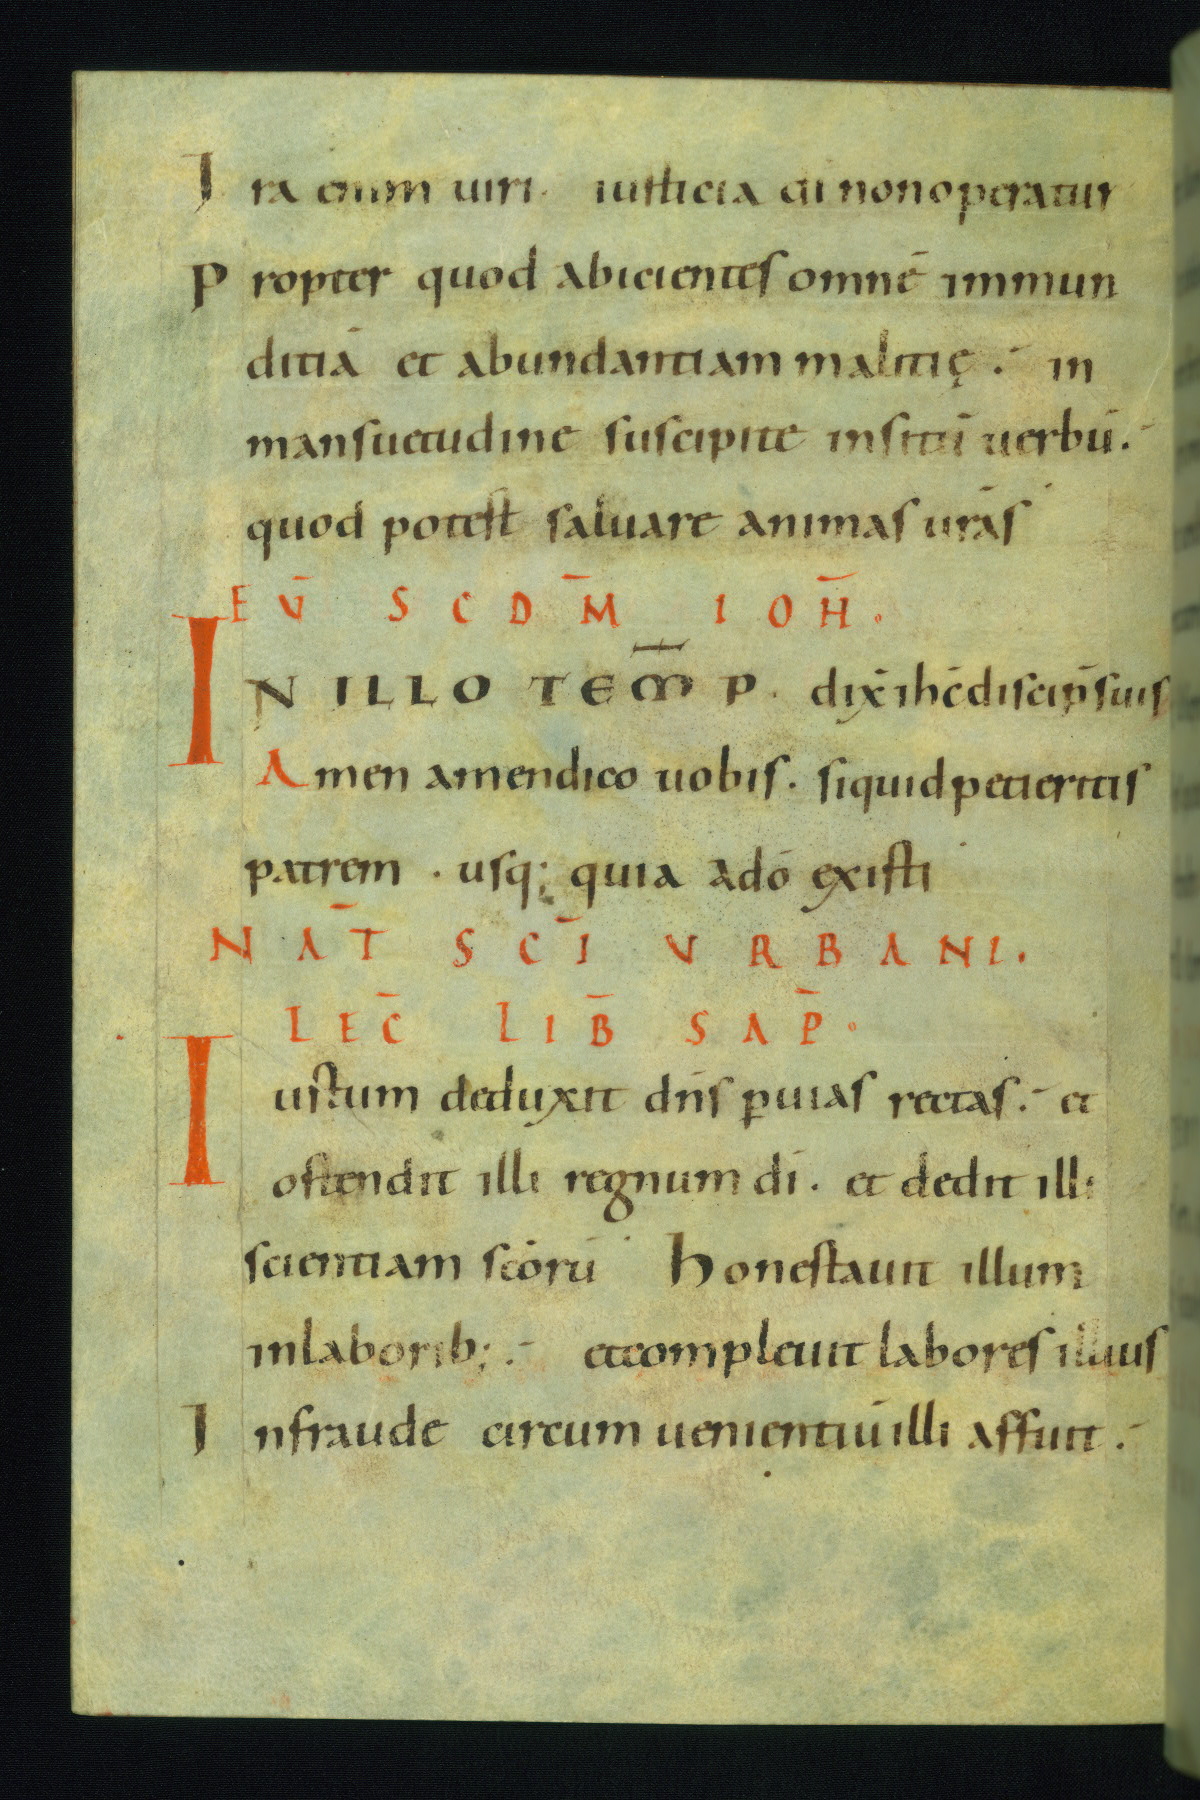 Ira enim uiri. iusticia di non operatur
Propter quod abicientes omnē immun
ditiā et abundantiam malitię. in
mansuetudine suscipite insitū uerbū.
quod potest saluare animas urās
EŪ SCDM̄ IOH̄.
IN ILLO TEM̄P. dix̄ ihc̄ discip̄ suis
Amen amen dico uobis. siquid petieritis
patrem. usq; quia a dō existi
NAT̄ SC̄I URBANI.
LEC̄ LIB̄ SAP̄.
Iustum deduxit dn̄s ꝑ uias rectas. et
ostendit illi regnum dī. et dedit illi
scientiam scōrū Honestauit illum
in laborib;. et compleuit labores illius
In fraude circum uenientiū illi affuit.